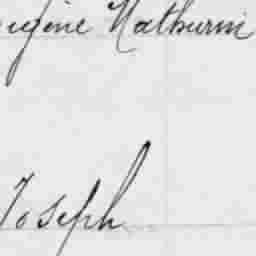 eugène Mathurin
Joseph